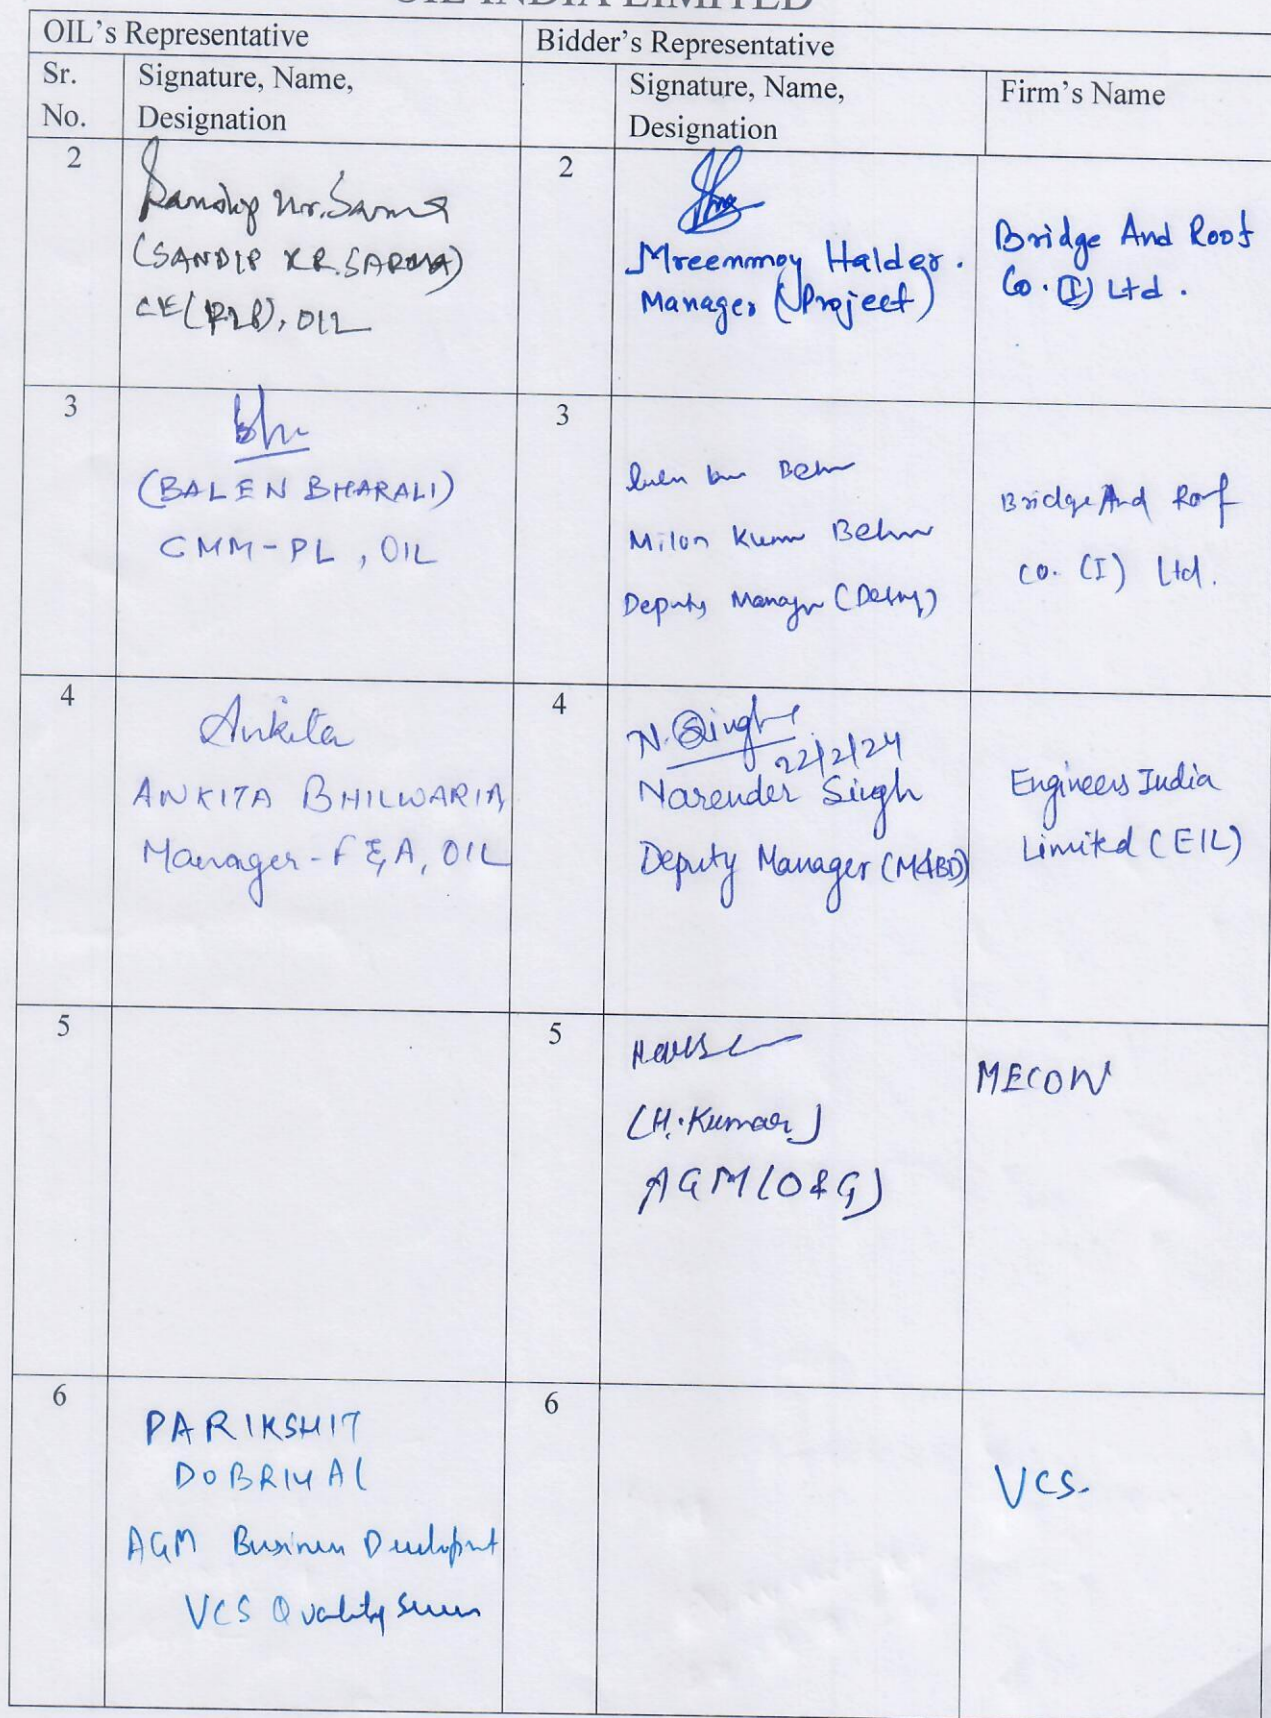 OIL INDIA LIMITED
OIL's Representative
Bidder's Representative
Sr. No.
Signature, Name, Designation
Signature, Name, Designation
Firm's Name
2
(SANDIP KR. SARMA)
OIL
2
Mreenmoy Halder.
Manager (Project)
Bridge And Roof
Co. (I) Ltd.
3
(BALEN BHARALI)
CMM-PL, OIL
3
Milon Kumar
Deputy Manager
Bridge And Roof
Co. (I) Ltd.
4
Ankita
ANKITA BHILWARIA
Manager-F&A, OIL
4
N. Singh
22/2/24
Narender Singh
Deputy Manager (M&BD)
Engineers India
Limited (EIL)
5
5
(H. Kumar)
AGM (O&G)
MECON
6
PARIKSHIT
DOBRIYAL
AGM Business Development
VCS Quality
6
VCS.